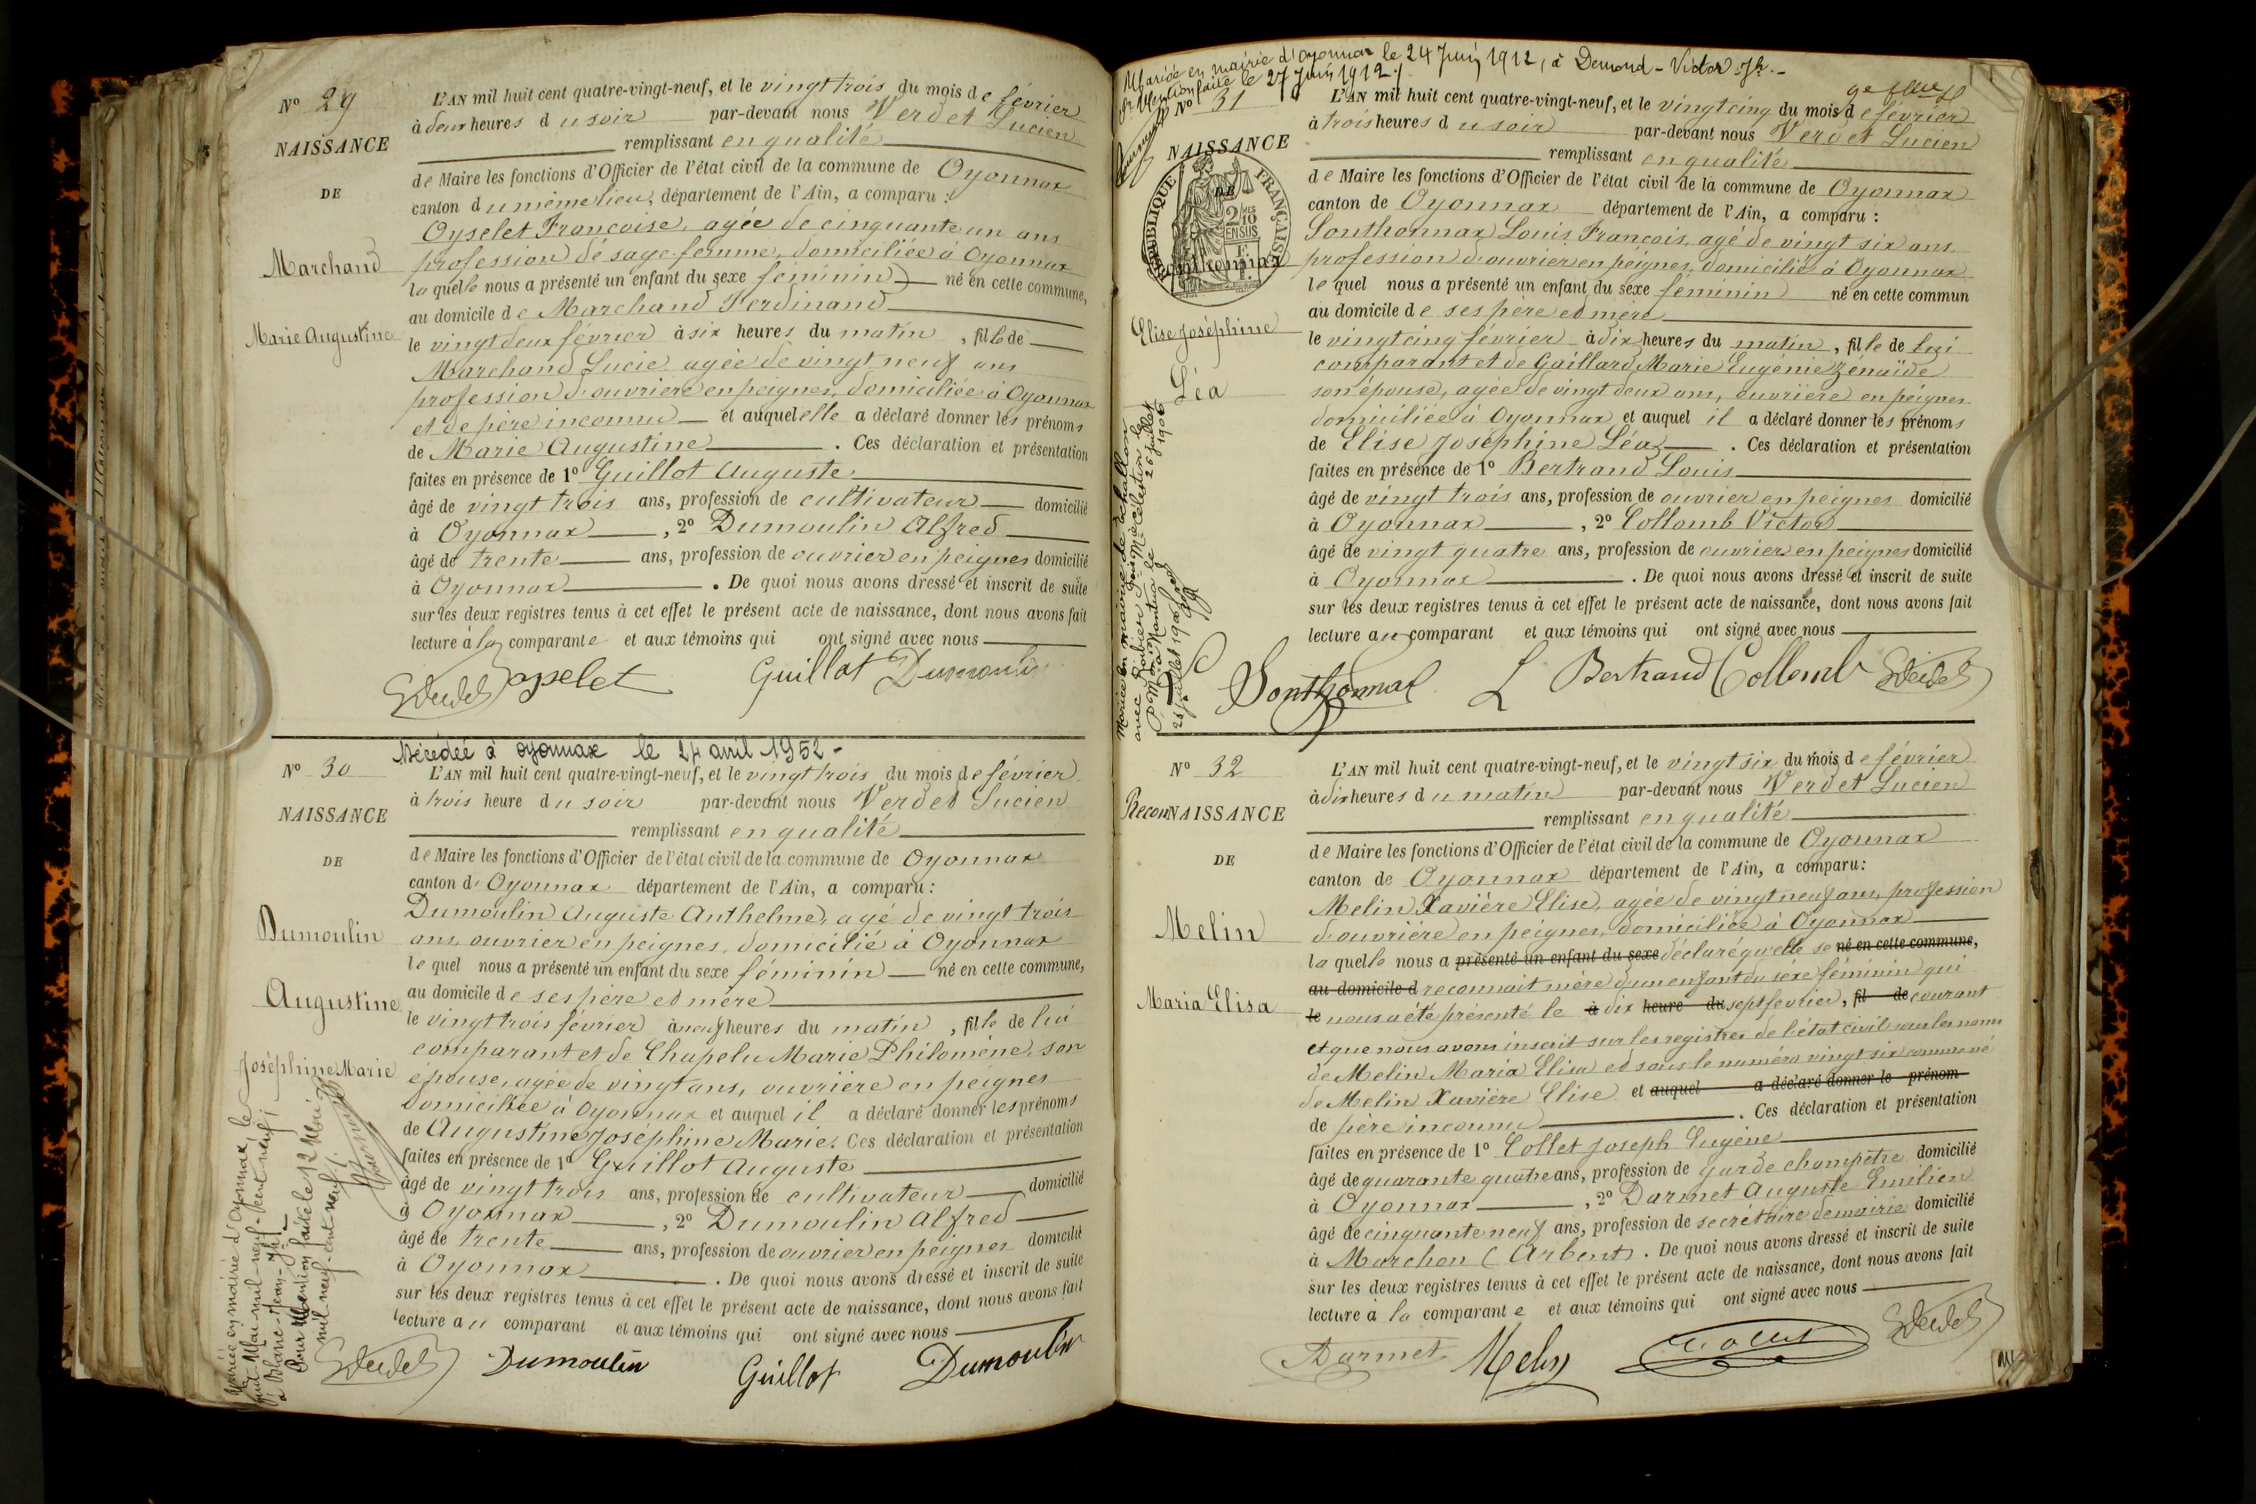 Nº 29
NAISSANCE
DE
Marchand
Marie Augustine
L'AN mil huit cent quatre-vingt-neuf, et le vingt trois du mois de février
à deux heures du soir par-devant nous Verdet Lucien
remplissant en qualité
de Maire les fonctions d'Officier de l'état civil de la commune de Oyonnax
canton du même lieu, département de l'Ain, a comparu :
Oyselet Françoise, agée de cinquante un ans
profession de sage femme, domiciliée à Oyonnax
laquelle nous a présenté un enfant du sexe féminin né en cette commune,
au domicile de Marchand Ferdinand
le vingt deux février à six heures du matin, fille de
Marchand Lucie agée de vingt neuf ans
profession d'ouvrière en peignes, domiciliée à Oyonnax
et de père inconnu et auquel elle a déclaré donner les prénoms
de Marie Augustine . Ces déclaration et présentation
faites en présence de 1º Guillot Auguste
âgé de vingt trois ans, profession de cultivateur domicilié
à Oyonnax , 2º Dumoulin Alfred
âgé de trente ans, profession de ouvrier en peignes domicilié
à Oyonnax . De quoi nous avons dressé et inscrit de suite
sur les deux registres tenus à cet effet le présent acte de naissance, dont nous avons fait
lecture à la comparante et aux témoins qui ont signé avec nous
Guillot Dumoulin
Décédée à oyonnax le 24 avril 1952 -
Nº 30
NAISSANCE
DE
Dumoulin
Augustine
Joséphine Marie
L'AN mil huit cent quatre-vingt-neuf, et le vingt trois du mois de février
à trois heure du soir par-devant nous Verdet Lucien
remplissant en qualité
de Maire les fonctions d'Officier de l'état civil de la commune de Oyonnax
canton d'Oyonnax département de l'Ain, a comparu :
Dumoulin Auguste Anthelme, agé de vingt trois
ans, ouvrier en peignes, domicilié à Oyonnax
lequel nous a présenté un enfant du sexe féminin né en cette commune,
au domicile de ses père et mère
le vingt trois février à neuf heures du matin, fille de lui
comparant et de Chapelu Marie Philomène, son
épouse, agée de vingt ans, ouvrière en peignes
domiciliée à Oyonnax et auquel il a déclaré donner les prénoms
de Augustine Joséphine Marie. Ces déclaration et présentation
faites en présence de 1º Guillot Auguste
âgé de vingt trois ans, profession de cultivateur domicilié
à Oyonnax , 2º Dumoulin Alfred
âgé de trente ans, profession de ouvrier en peignes domicilié
à Oyonnax . De quoi nous avons dressé et inscrit de suite
sur les deux registres tenus à cet effet le présent acte de naissance, dont nous avons fait
lecture au comparant et aux témoins qui ont signé avec nous
Dumoulin Guillot Dumoulin
Mariée en mairie d'Oyonnax le
huit Mai mil-neuf-cent neuf
à Blanc-Jean-
Pour Mention faite le 12 Mai
mil neuf-cent neuf
Mariée en mairie d'oyonnax le 24 Juin 1912, à Demond-Victor-Jh.-
Pr Mention faite le 27 Juin 1912
Nº 31
NAISSANCE
DE
RÉPUBLIQUE FRANÇAISE
Southonnax
Elise Joséphine
Léa
L'AN mil huit cent quatre-vingt-neuf, et le vingt cinq du mois de février
à trois heures du soir par-devant nous Verdet Lucien
remplissant en qualité
de Maire les fonctions d'Officier de l'état civil de la commune de Oyonnax
canton de Oyonnax département de l'Ain, a comparu :
Southonnax Louis François, agé de vingt six ans
profession d'ouvrier en peignes, domicilié à Oyonnax
lequel nous a présenté un enfant du sexe féminin né en cette commun
au domicile de ses père et mère
le vingt cinq février à dix heures du matin, fille de lui
comparant et de Gaillard Marie Eugénie Zénaïde
son épouse, agée de vingt deux ans, ouvrière en peignes
domiciliée à Oyonnax et auquel il a déclaré donner les prénoms
de Elise Joséphine Léa . Ces déclaration et présentation
faites en présence de 1º Bertrand Louis
âgé de vingt trois ans, profession de ouvrier en peignes domicilié
à Oyonnax , 2º Collomb Victor
âgé de vingt quatre ans, profession de ouvrier en peignes domicilié
à Oyonnax . De quoi nous avons dressé et inscrit de suite
sur les deux registres tenus à cet effet le présent acte de naissance, dont nous avons fait
lecture au comparant et aux témoins qui ont signé avec nous
Southonnax L Bertrand Collomb
Nº 32
ReconNAISSANCE
DE
Melin
Maria Elisa
L'AN mil huit cent quatre-vingt-neuf, et le vingt six du mois de février
à dix heures du matin par-devant nous Verdet Lucien
remplissant en qualité
de Maire les fonctions d'Officier de l'état civil de la commune de Oyonnax
canton de Oyonnax département de l'Ain, a comparu:
Melin Xavière Elise, agée de vingt neuf ans, profession
d'ouvrière en peignes, domiciliée à Oyonnax
laquelle nous a présenté un enfant du sexe déclaré qu'elle se né en cette commune,
au domicile d reconnait mère d'un enfant du sexe féminin qui
le nous a été présenté le à dix heure du sept février, fil de courant
et que nous avons inscrit sur les registres de l'état civil sous les noms
de Melin Maria Elisa et sous le numéro vingt six comme né
de Melin Xavière Elise et auquel a déclaré donner le prénom
de père inconnu . Ces déclaration et présentation
faites en présence de 1º Collet Joseph Eugène
âgé de quarante quatre ans, profession de garde champêtre domicilié
à Oyonnax , 2º Darmet Auguste Emilien
âgé de cinquante neuf ans, profession de secrétaire de mairie domicilié
à Marchon (Arbent). De quoi nous avons dressé et inscrit de suite
sur les deux registres tenus à cet effet le présent acte de naissance, dont nous avons fait
lecture à la comparante et aux témoins qui ont signé avec nous
Darmet Melin